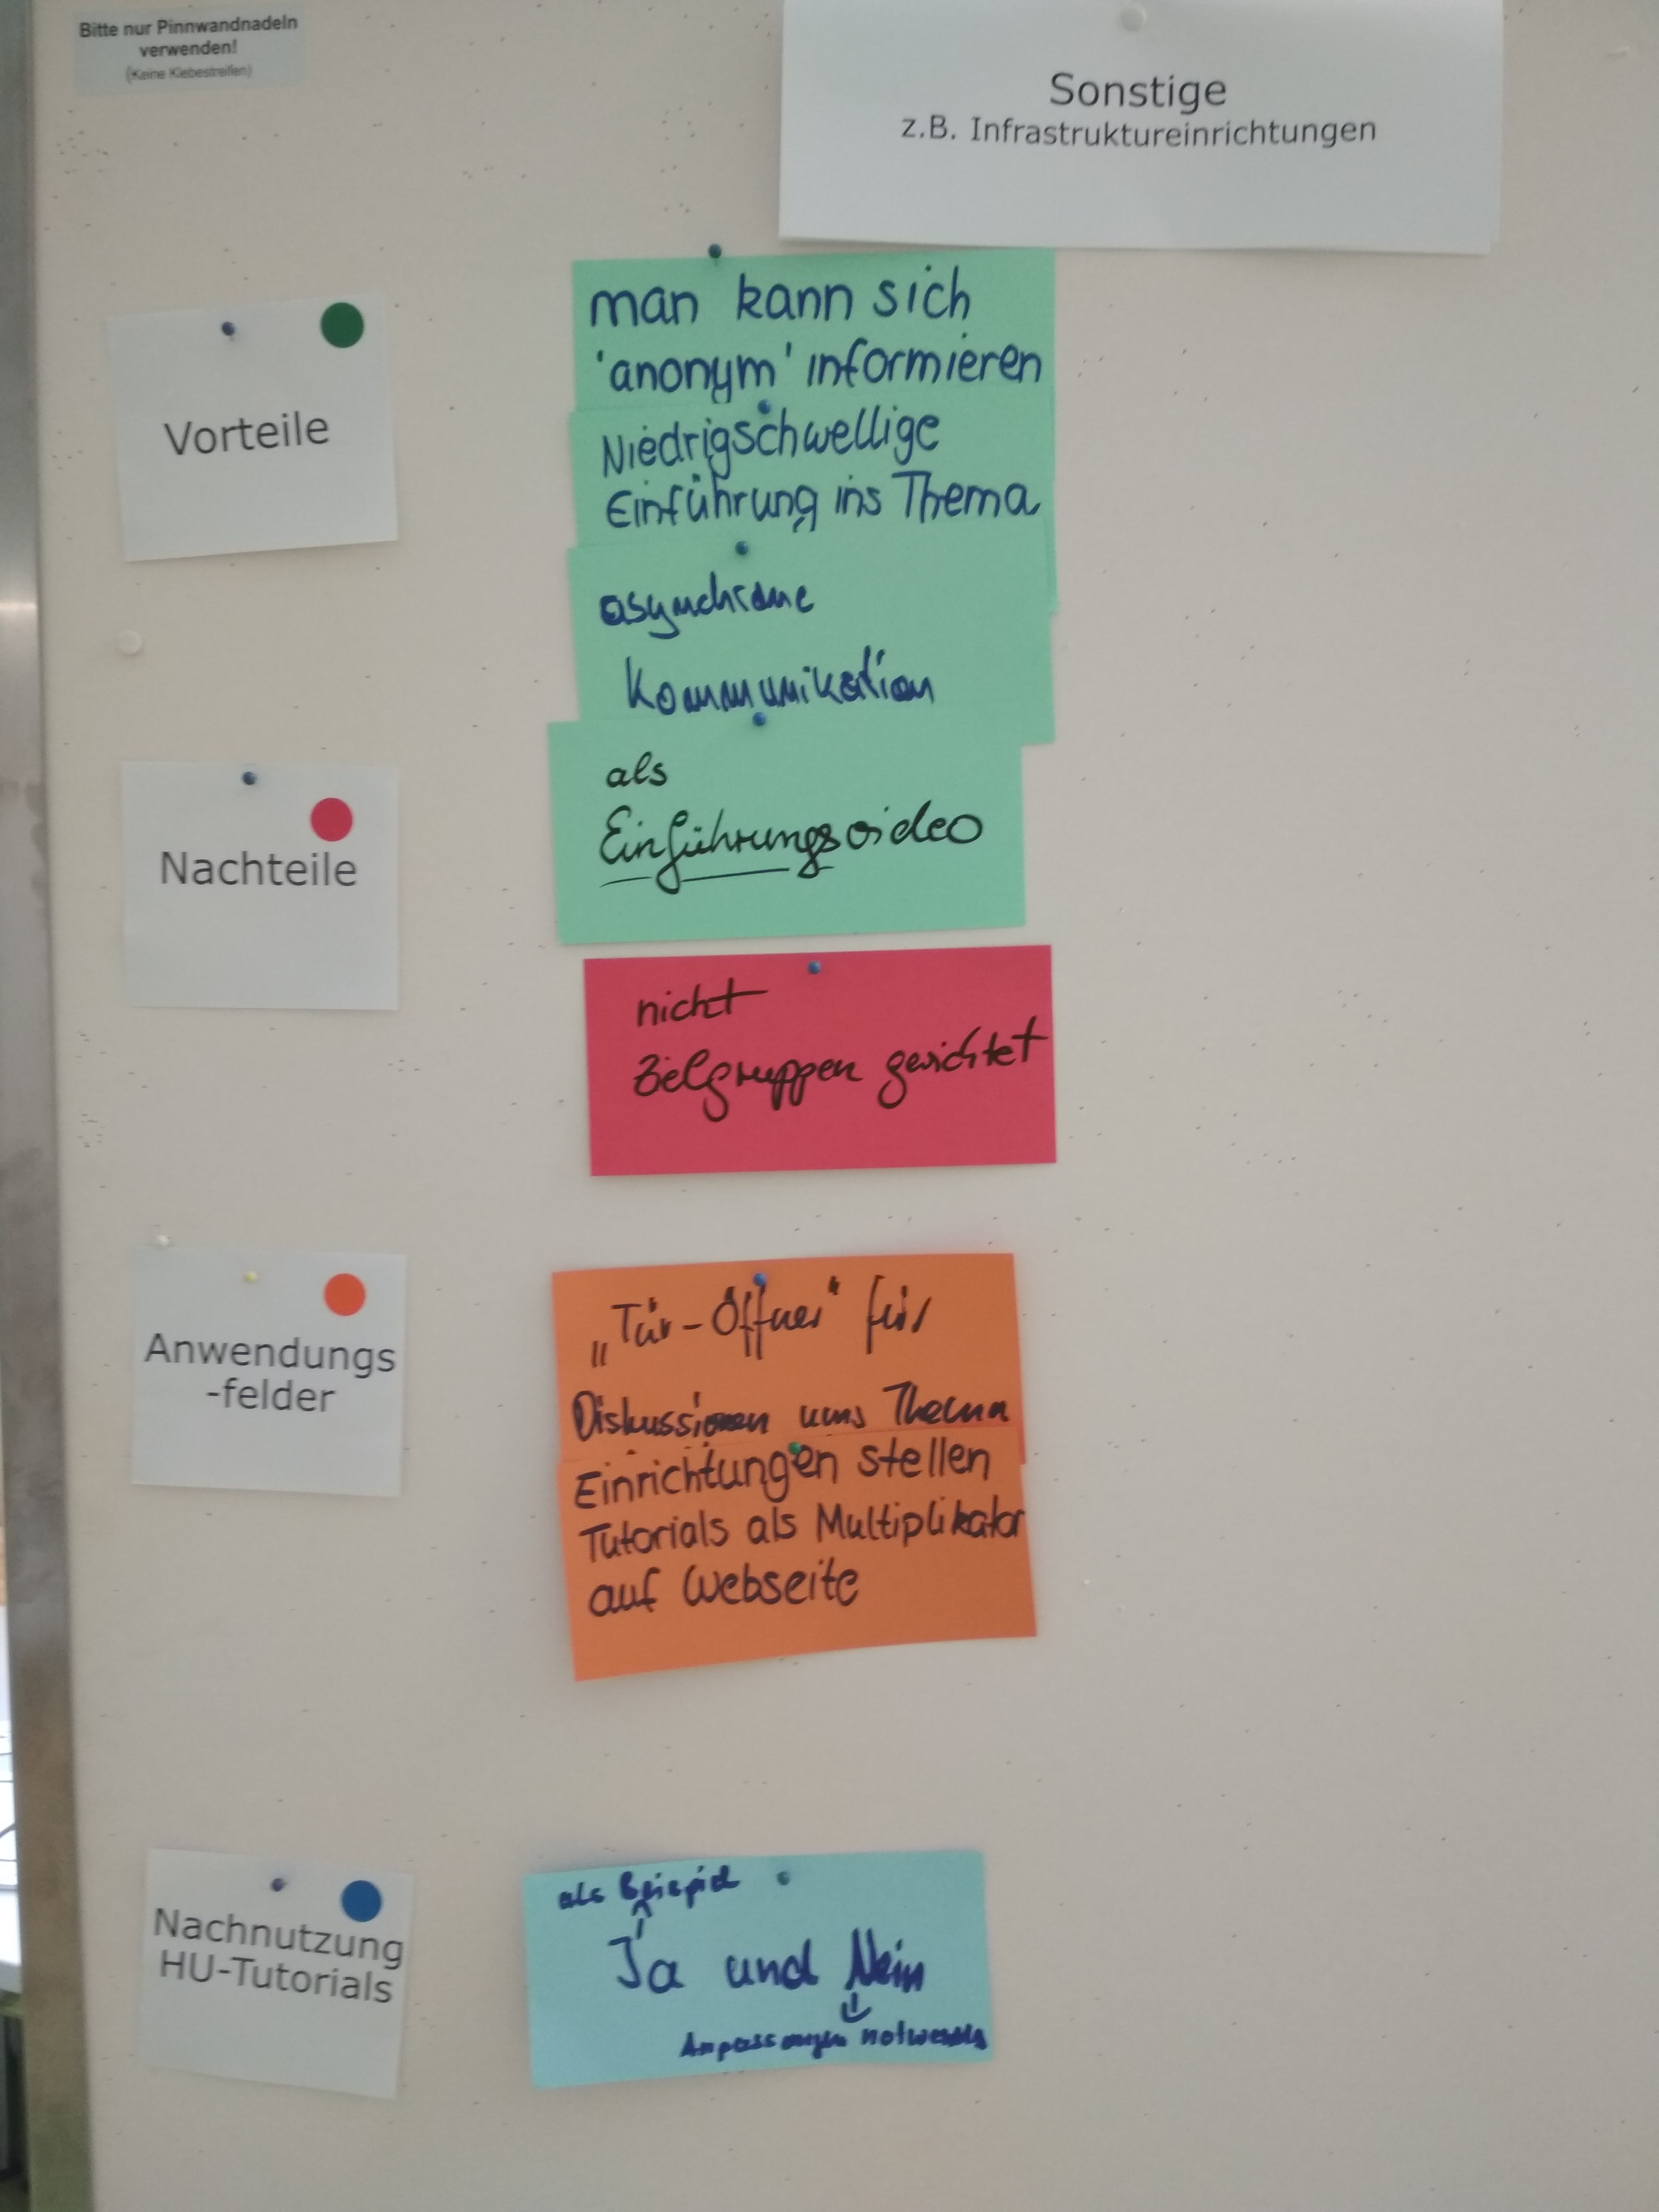 Bitte nur Pinnwandnadeln
verwenden!
(Keine Klebestreifen)
Sonstige
z.B. Infrastruktureinrichtungen
Vorteile
man kann sich
'anonym' informieren
Niedrigschwellige
Einführung ins Thema
asynchrone
Kommunikation
als
Einführungsvideo
Nachteile
nicht
Zielgruppen gerichtet
Anwendungs
-felder
„Tür-Öffner" für
Diskussionen ums Thema
Einrichtungen stellen
Tutorials als Multiplikator
auf Webseite
Nachnutzung
HU-Tutorials
als Beispiel
Ja und Nein
Anpassungen notwendig